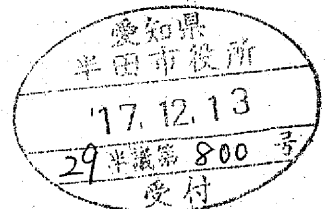 愛知県
半田市役所
'17.12.13
29半議第800号
受付